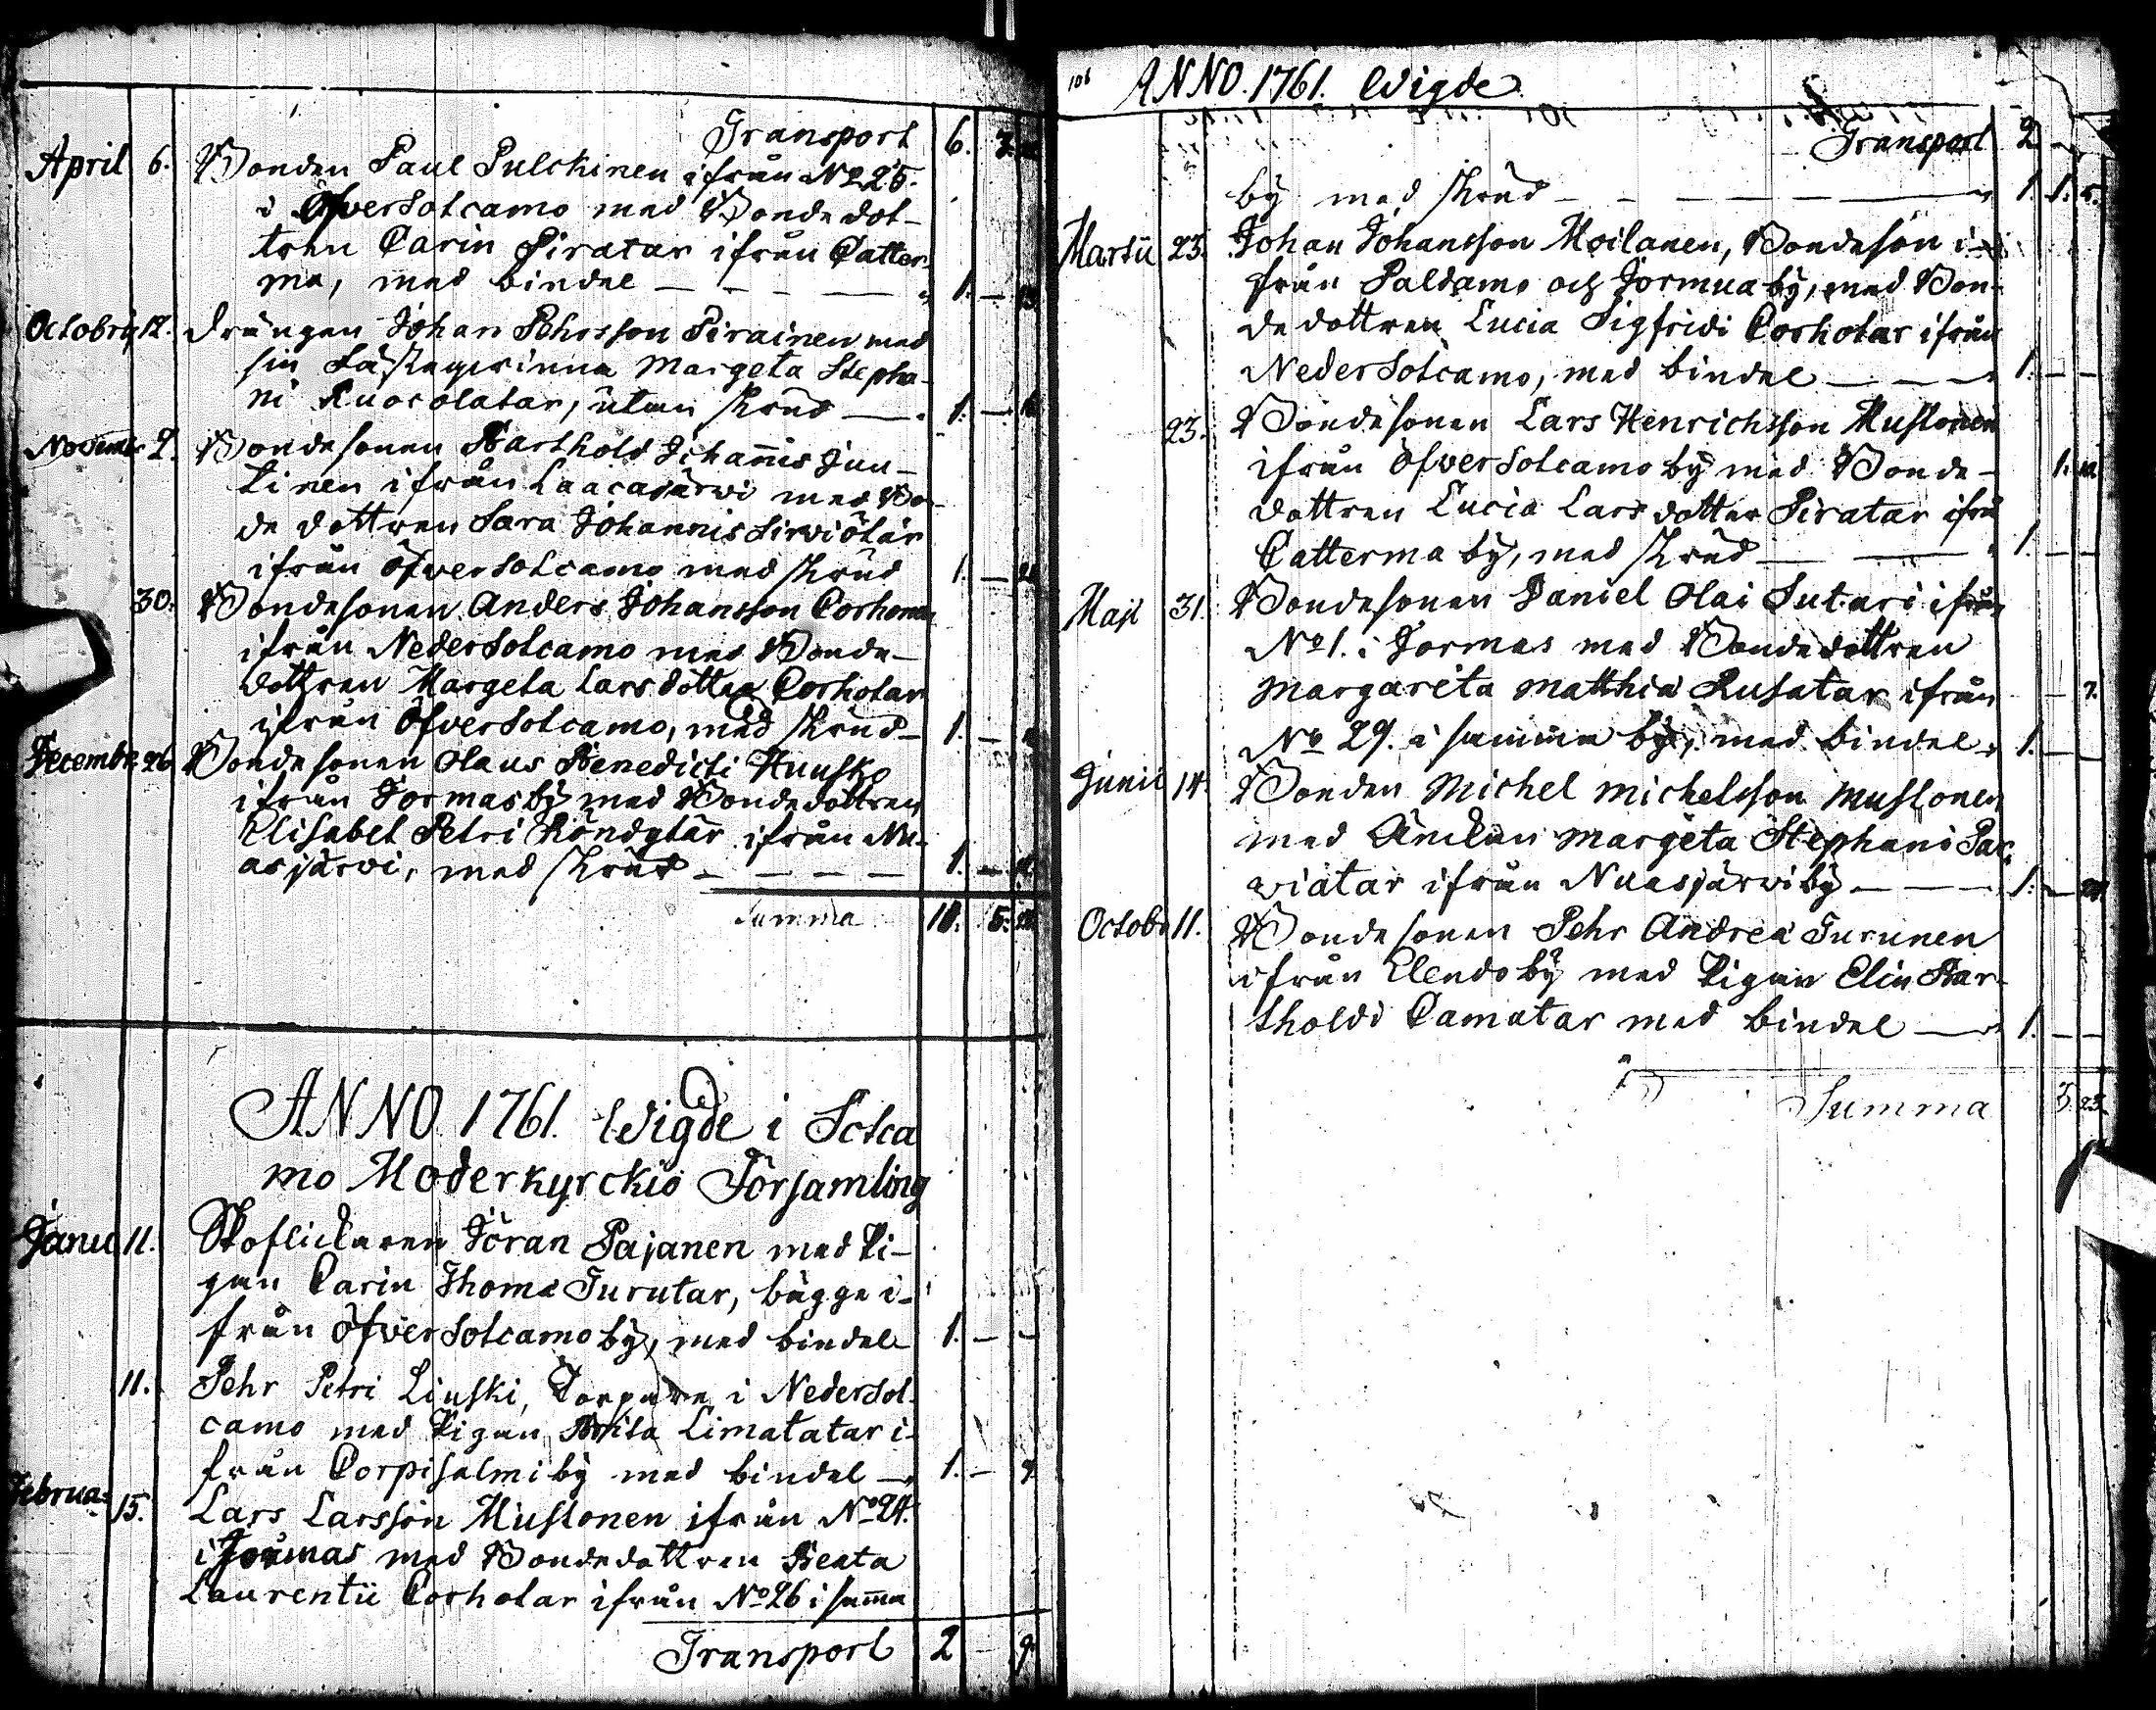 Transport 6. 7.
April 6. Bonden Paul Pulckinen ifrån No 25.
i Öfversotcamo med Bondedot-
tren Carin Piratar ifrån Catter-
ma, med bindel 1. —
Octobris 12. Drängen Johan Pehrsson Pirainen med
sin Lägerqwinna Margeta Stepha-
ni Ruocolatar, utan skrud 1. —
Novembr 9. Bondesonen Barthold Johannis Jun-
tinen ifrån Laacajärwi med Bon-
de dottren Sara Johannis Sirwiötär
ifrån öfversotcamo med skrud 1. —
30. Bondesonen Anders Johansson Corhonen
ifrån Nedersotcamo med Bonde-
dottren Margeta Larsdotter Corhotar
ifrån Öfversotcamo, med skrud 1. —
Decembr. 26. Bondesonen Olaus Benedicti Huusko
ifrån Jormasby med Bondedottren
Elisabet Petri Röndytär ifrån Nu-
asjärvi, med skrud 1. —
Summa 10. 5.
ANNO 1761. Wigde i Sotca
mo Moderkyrckio Församling
Janu 11. Skoflickaren Jöran Pajanen med Pi-
gan Carin Thomæ Turutar, bägge i-
från öfversotcamo by, med bindel 1. — —
11. Pehr Petri Liuski, Torpare i Nedersot-
camo med Pigan Brita Limatatar i-
från Corpisalmi by med bindel 1. — 9.
Februa: 15. Lars Larsson Mustonen ifrån No 24.
i Jormas med Bondedottren Beata
Laurentii Corhotar ifrån No 26 i samma
Transport 2 — 9.
106 ANNO. 1761. Wigde
Transport 2 —
by med skrud 1. 1. 5.
Martii 23. Johan Johansson Moilanen, Bondesön i-
från Paldamo och Jormua by, med Bon-
de dottren Lucia Sigfridi Corhotar ifrån
Nedersotcamo, med bindel 1. — —
23. Bondesonen Lars Henrichsson Mustonen
ifrån öfversotcamo by med Bonde-
dottren Lucia Larsdotter Piratar ifrå
Catterma by, med skrud 1. — —
Maji 31. Bondesonen Daniel Olai Sutari ifrån
No 1. i Jormas med Bondedottren
Margareta Matthiæ Rusatar ifrån
No 29. i samma by, med bindel 1. —
Junii 14. Bonden Michel Michelsson Mustonen
med Änckan Margeta Stephani Par-
wiatar ifrån Nuasjärwi by 1. —
Octobr 11. Bondesonen Pehr Andreæ Turunen
ifrån Elendo by med Pigan Elin Bar-
tholdi Camutar med bindel 1. — —
Summa 3. 23.